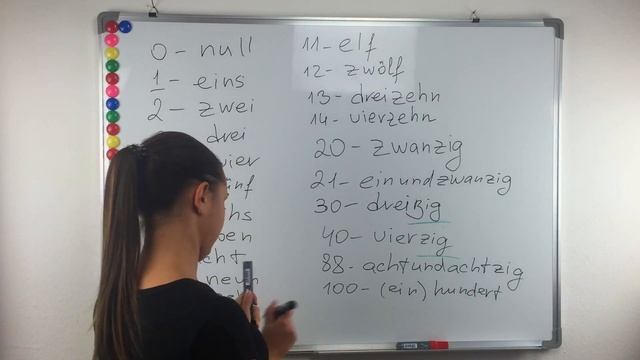 0 - null
1 - eins
2 - zwei
drei
ier
nf
hs
ben
cht
neun
11 - elf
12 - zwölf
13 - dreizehn
14 - vierzehn
20 - zwanzig
21 - einundzwanzig
30 - dreißig
40 - vierzig
88 - achtundachtzig
100 - (ein) hundert